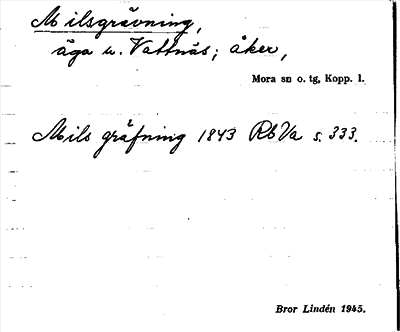 Milsgrävning,
äga u. Vattnäs; åker,
Mora sn o. tg, Kopp. l.
Mils gräfning 1843 RbVa s. 333.
Bror Lindén 1945.